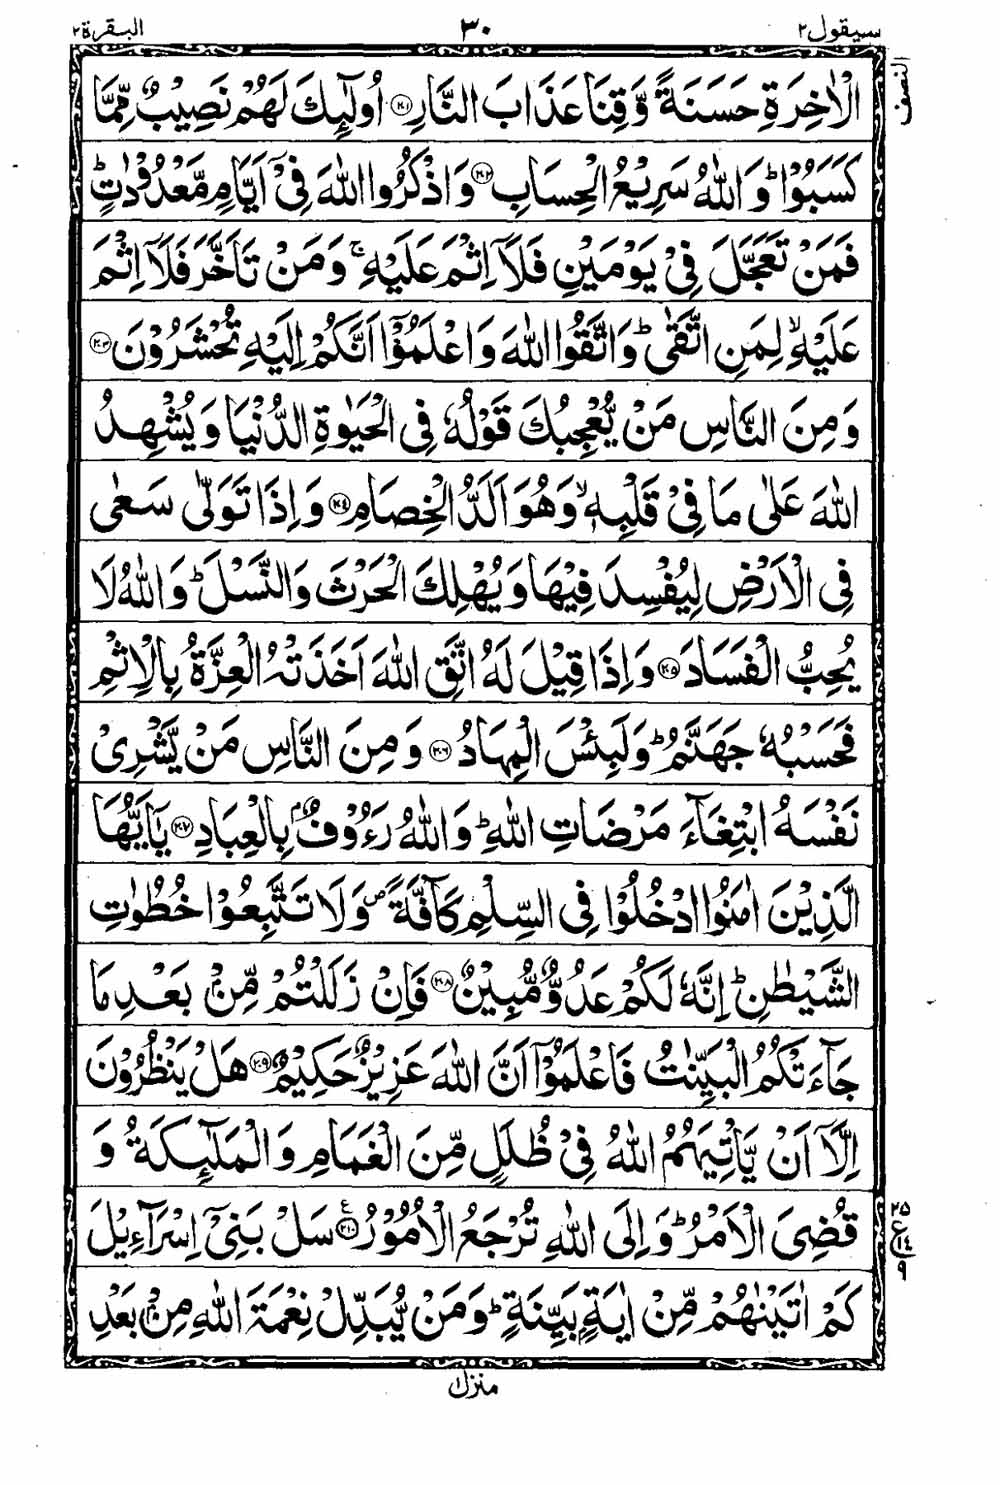 سيقول ٢
٣٠
البقرة ٢
النصف
الْاٰخِرَةِ حَسَنَةً وَّقِنَا عَذَابَ النَّارِ ﴿٢٠١﴾ اُولٰٓئِكَ لَهُمْ نَصِيْبٌ مِّمَّا
كَسَبُوْا ؕ وَاللّٰهُ سَرِيْعُ الْحِسَابِ ﴿٢٠٢﴾ وَاذْكُرُوا اللّٰهَ فِيْٓ اَيَّامٍ مَّعْدُوْدٰتٍ ؕ
فَمَنْ تَعَجَّلَ فِيْ يَوْمَيْنِ فَلَاۤ اِثْمَ عَلَيْهِ ۚ وَمَنْ تَاَخَّرَ فَلَاۤ اِثْمَ
عَلَيْهِ ۙ لِمَنِ اتَّقٰى ؕ وَاتَّقُوا اللّٰهَ وَاعْلَمُوْۤا اَنَّكُمْ اِلَيْهِ تُحْشَرُوْنَ ﴿٢٠٣﴾
وَمِنَ النَّاسِ مَنْ يُّعْجِبُكَ قَوْلُهٗ فِي الْحَيٰوةِ الدُّنْيَا وَيُشْهِدُ
اللّٰهَ عَلٰى مَا فِيْ قَلْبِهٖ ۙ وَهُوَ اَلَدُّ الْخِصَامِ ﴿٢٠٤﴾ وَاِذَا تَوَلّٰى سَعٰى
فِي الْاَرْضِ لِيُفْسِدَ فِيْهَا وَيُهْلِكَ الْحَرْثَ وَالنَّسْلَ ؕ وَاللّٰهُ لَا
يُحِبُّ الْفَسَادَ ﴿٢٠٥﴾ وَاِذَا قِيْلَ لَهُ اتَّقِ اللّٰهَ اَخَذَتْهُ الْعِزَّةُ بِالْاِثْمِ
فَحَسْبُهٗ جَهَنَّمُ ؕ وَلَبِئْسَ الْمِهَادُ ﴿٢٠٦﴾ وَمِنَ النَّاسِ مَنْ يَّشْرِيْ
نَفْسَهُ ابْتِغَآءَ مَرْضَاتِ اللّٰهِ ؕ وَاللّٰهُ رَءُوْفٌۢ بِالْعِبَادِ ﴿٢٠٧﴾ يٰۤاَيُّهَا
الَّذِيْنَ اٰمَنُوا ادْخُلُوْا فِي السِّلْمِ كَآفَّةً ۪ وَلَا تَتَّبِعُوْا خُطُوٰتِ
الشَّيْطٰنِ ؕ اِنَّهٗ لَكُمْ عَدُوٌّ مُّبِيْنٌ ﴿٢٠٨﴾ فَاِنْ زَلَلْتُمْ مِّنْۢ بَعْدِ مَا
جَآءَتْكُمُ الْبَيِّنٰتُ فَاعْلَمُوْۤا اَنَّ اللّٰهَ عَزِيْزٌ حَكِيْمٌ ﴿٢٠٩﴾ هَلْ يَنْظُرُوْنَ
اِلَّاۤ اَنْ يَّاْتِيَهُمُ اللّٰهُ فِيْ ظُلَلٍ مِّنَ الْغَمَامِ وَالْمَلٰٓئِكَةُ وَ
قُضِيَ الْاَمْرُ ؕ وَاِلَى اللّٰهِ تُرْجَعُ الْاُمُوْرُ ﴿٢١٠﴾ ع سَلْ بَنِيْۤ اِسْرَآءِيْلَ
كَمْ اٰتَيْنٰهُمْ مِّنْ اٰيَةٍۭ بَيِّنَةٍ ؕ وَمَنْ يُّبَدِّلْ نِعْمَةَ اللّٰهِ مِنْۢ بَعْدِ
٢٥
ع
١٤
٩
منزل١